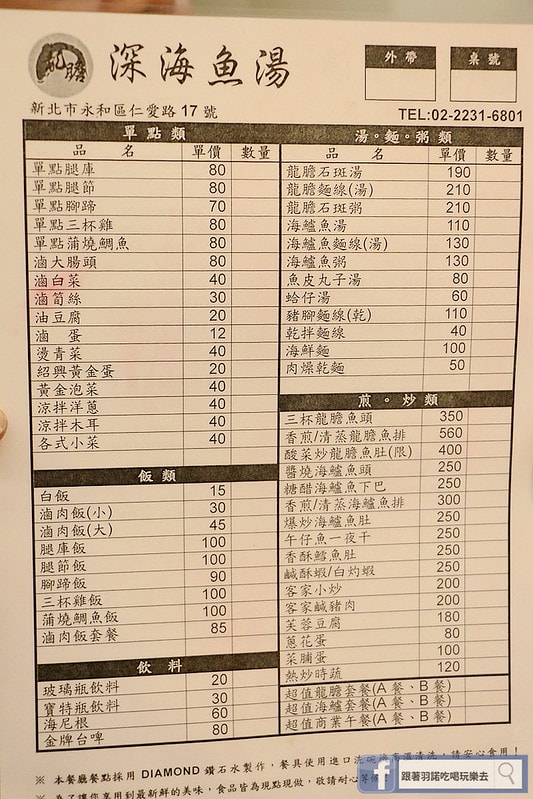 龍膽 深海魚湯
外帶
桌號
新北市永和區仁愛路17號
TEL:02-2231-6801
單點類
品 名 單價 數量
單點腿庫 80
單點腿節 80
單點腳蹄 70
單點三杯雞 80
單點蒲燒鯛魚 80
滷大腸頭 80
滷白菜 40
滷筍絲 30
油豆腐 20
滷 蛋 12
燙青菜 40
紹興黃金蛋 20
黃金泡菜 40
涼拌洋蔥 40
涼拌木耳 40
各式小菜 40
飯類
白飯 15
滷肉飯(小) 30
滷肉飯(大) 45
腿庫飯 100
腿節飯 100
腳蹄飯 90
三杯雞飯 100
蒲燒鯛魚飯 100
滷肉飯套餐 85
飲料
玻璃瓶飲料 20
寶特瓶飲料 30
海尼根 60
金牌台啤 80
湯。麵。粥類
品 名 單價 數量
龍膽石斑湯 190
龍膽麵線(湯) 210
龍膽石斑粥 210
海鱸魚湯 110
海鱸魚麵線(湯) 130
海鱸魚粥 130
魚皮丸子湯 80
蛤仔湯 60
豬腳麵線(乾) 110
乾拌麵線 40
海鮮麵 100
肉燥乾麵 50
煎。炒類
三杯龍膽魚頭 350
香煎/清蒸龍膽魚排 560
酸菜炒龍膽魚肚(限) 400
醬燒海鱸魚頭 250
糖醋海鱸魚下巴 250
香煎/清蒸海鱸魚排 300
爆炒海鱸魚肚 250
午仔魚一夜干 250
香酥鱈魚肚 250
鹹酥蝦/白灼蝦 250
客家小炒 200
客家鹹豬肉 200
芙蓉豆腐 180
蔥花蛋 80
菜脯蛋 100
熱炒時蔬 120
超值龍膽套餐(A餐、B餐)
超值海鱸套餐(A餐、B餐)
超值商業午餐(A餐、B餐)
※ 本餐廳餐點採用 DIAMOND 鑽石水製作，餐具使用進口洗碗機高溫清洗，請安心食用！
※ 為了讓您享用到最新鮮的美味，食品皆為現點現做，敬請耐心等候
f 跟著羽諾吃喝玩樂去